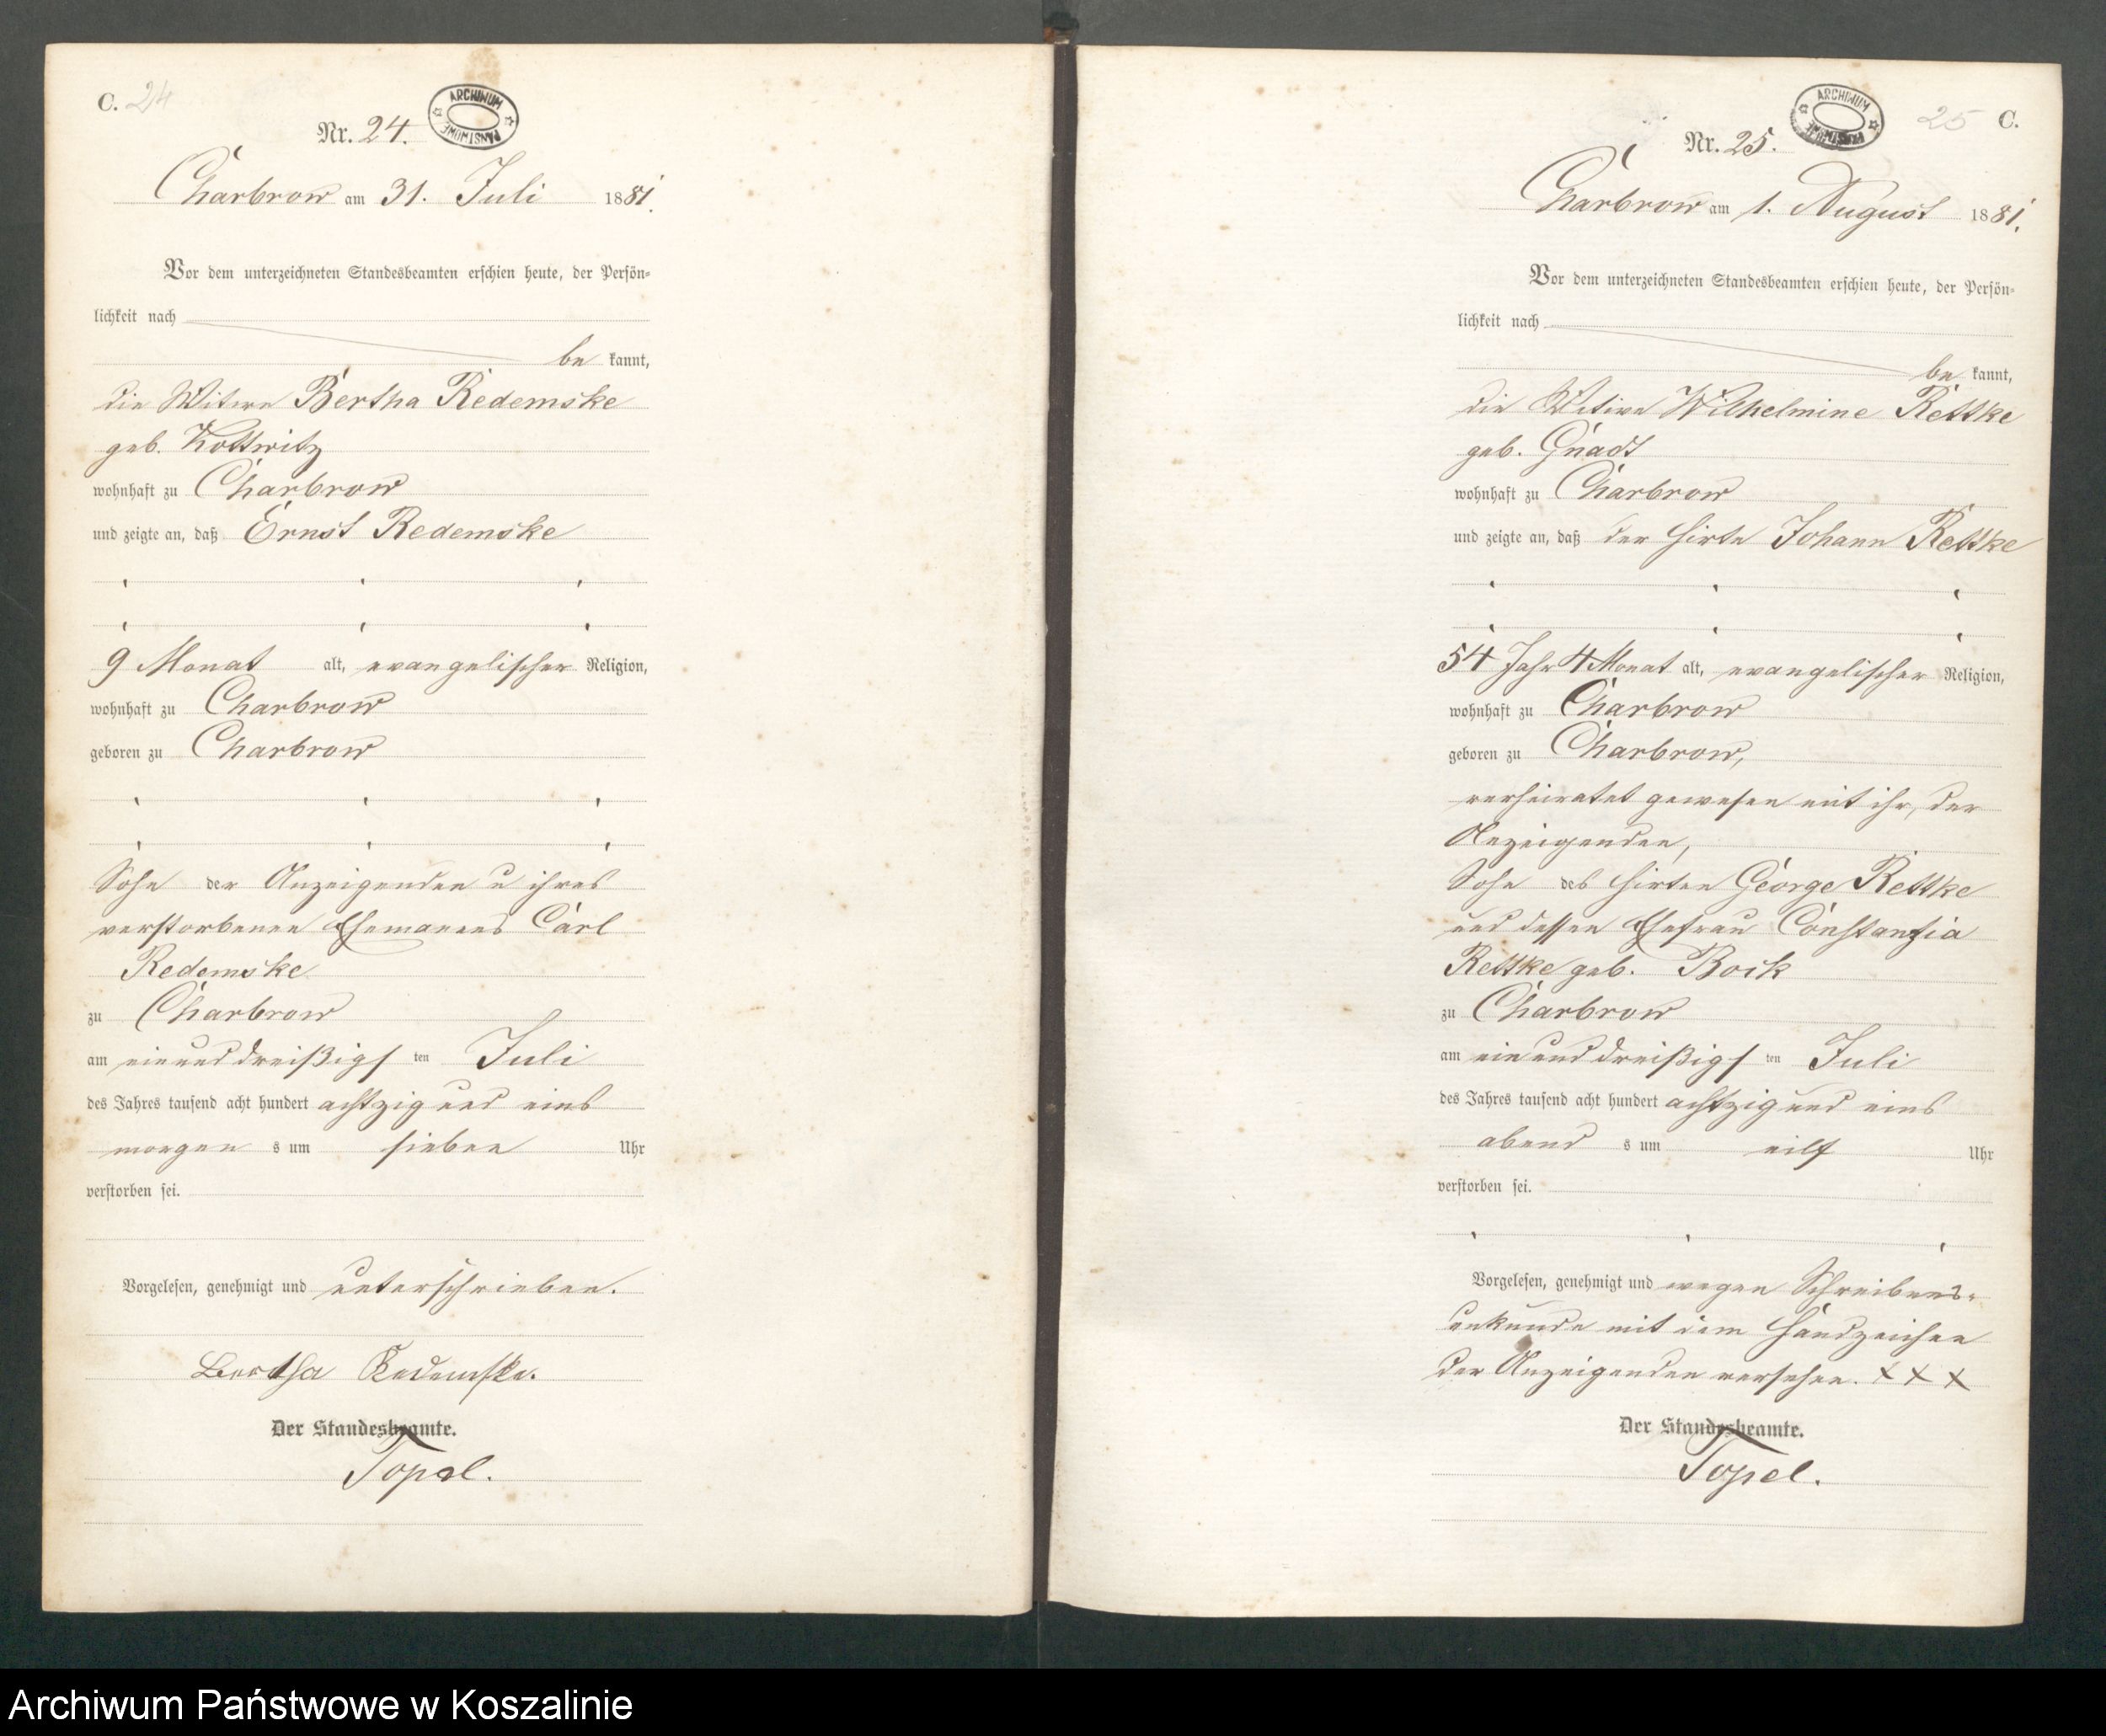 C. 24
ARCHIWUM PAŃSTWOWE
Nr. 24.
Charbrow am 31. Juli 1881.
Vor dem unterzeichneten Standesbeamten erschien heute, der Persön-
lichkeit nach
be kannt,
die Witwe Bertha Redemske
geb. Kottwitz
wohnhaft zu Charbrow
und zeigte an, daß Ernst Redemske
9 Monat alt, evangelischer Religion,
wohnhaft zu Charbrow
geboren zu Charbrow
Sohn der Anzeigenden u ihres
verstorbenen Ehemannes Carl
Redemske
zu Charbrow
am einunddreißigsten Juli
des Jahres tausend acht hundert achtzig und eins
morgens um sieben Uhr
verstorben sei.
Vorgelesen, genehmigt und unterschrieben.
Bertha Redemske.
Der Standesbeamte.
Topel.
25 C.
ARCHIWUM PAŃSTWOWE
Nr. 25.
Charbrow am 1. August 1881.
Vor dem unterzeichneten Standesbeamten erschien heute, der Persön-
lichkeit nach
be kannt,
die Witwe Wilhelmine Rettke
geb. Gnadt
wohnhaft zu Charbrow
und zeigte an, daß der Hirte Johann Rettke
54 Jahr 4 Monat alt, evangelischer Religion,
wohnhaft zu Charbrow
geboren zu Charbrow,
verheiratet gewesen mit ihr, der
Anzeigenden,
Sohn des Hirten George Rettke
und dessen Ehefrau Constanzia
Rettke geb. Bock
zu Charbrow
am einunddreißigsten Juli
des Jahres tausend acht hundert achtzig und eins
abends um eilf Uhr
verstorben sei.
Vorgelesen, genehmigt und wegen Schreibens-
unkunde mit dem Handzeichen
der Anzeigenden versehen. XXX
Der Standesbeamte.
Topel.
Archiwum Państwowe w Koszalinie